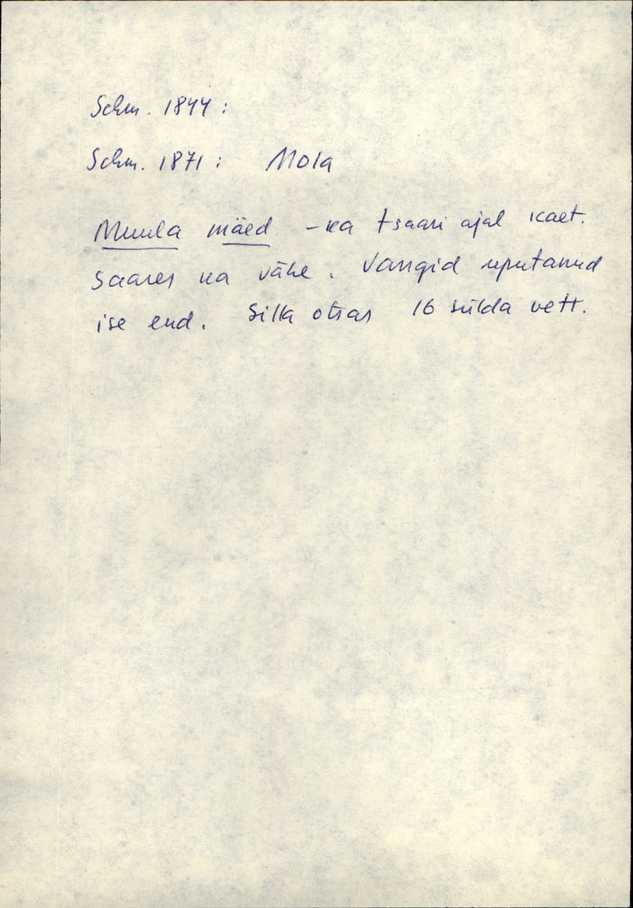 Schm. 1844:
Schm. 1871: Mola
Muula mäed - ka tsaari ajal kaet.
Saares ka vähe. Vangid uputanud
ise end. Silla otsas 16 sülda vett.